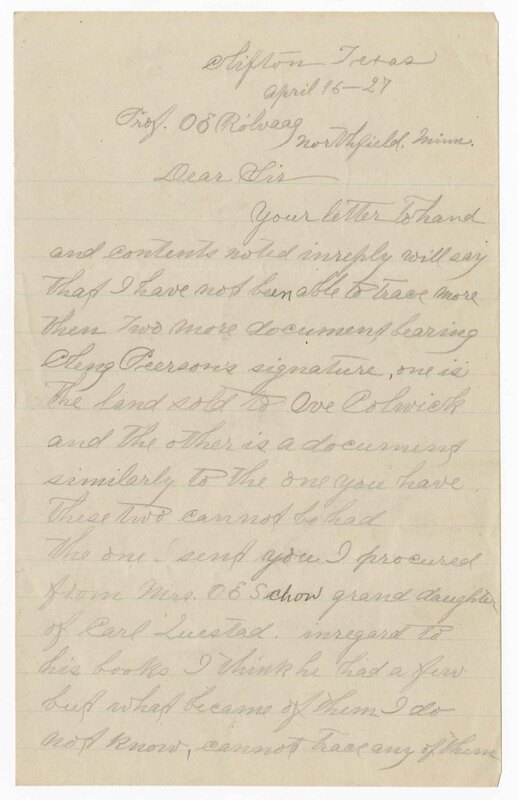 Clifton Texas
April 16-27
Prof. OE Rölvaag
Northfield. Minn.
Dear Sir
Your letter to hand
and contents noted inreply will say
that I have not been able to trace more
then Two more document bearing
Cleng Peerson's signature, one is
the land sold to Ove Colwick
and the other is a document
similarly to the one you have
these two cannot be had
the one send you I procured
from Mrs. OE Schow grand daughter
of Carl Questad. inregard to
his books I think he had a few
but what became of them I do
not know, cannot trace any of them